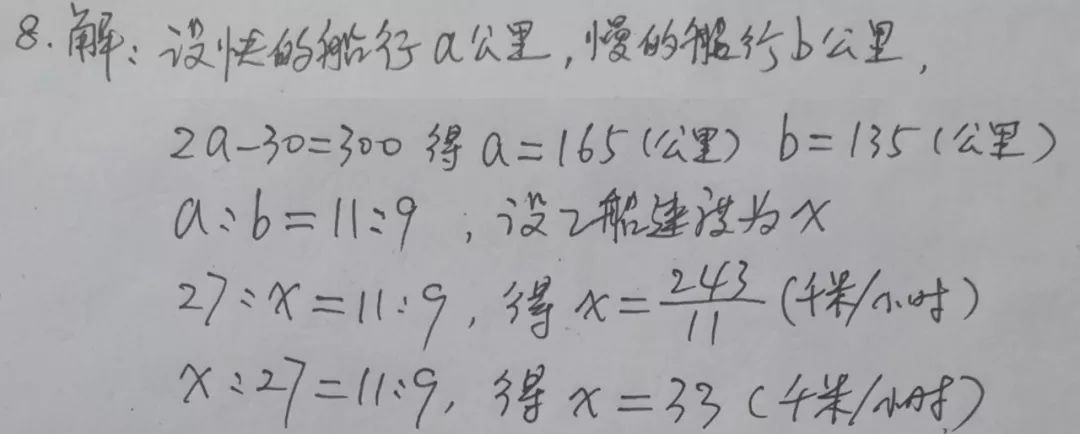 8. 解：设快的船行a公里，慢的船行b公里，
2a-30=300 得 a=165（公里） b=135（公里）
a:b=11:9 ，设乙船速度为x
27:x=11:9，得 x=243/11（千米/小时）
x:27=11:9，得 x=33（千米/小时）